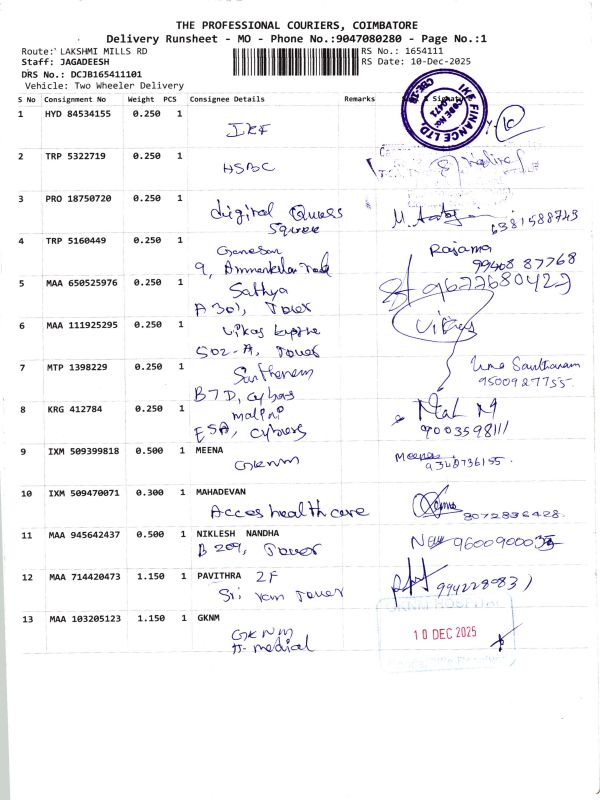 THE PROFESSIONAL COURIERS, COIMBATORE
Delivery Runsheet - MO - Phone No.:9047080280 - Page No.:1
Route: LAKSHMI MILLS RD
RS No.: 1654111
Staff: JAGADEESH
RS Date: 10-Dec-2025
DRS No.: DCJB165411101
Vehicle: Two Wheeler Delivery
S No Consignment No Weight PCS Consignee Details Remarks
IKF FINANCE LTD,
CBE-18
1 HYD 84534155 0.250 1
IKF
2 TRP 5322719 0.250 1
HSBC
3 PRO 18750720 0.250 1
digital
Square
6381588743
4 TRP 5160449 0.250 1
Ganesan
9,
Rajama
99408 87768
5 MAA 650525976 0.250 1
Sathya
A 301, Tower
9677680422
6 MAA 111925295 0.250 1
Vikas
502-A, Tower
Vikas
7 MTP 1398229 0.250 1
Santhanam
B7D, cybers
Uma Santhanam
9500927755
8 KRG 412784 0.250 1
Malini
E5A, cybers
9003598111
9 IXM 509399818 0.500 1 MEENA
GKNM
Meena
9340736155
10 IXM 509470071 0.300 1 MAHADEVAN
Acces health care
8072836428
11 MAA 945642437 0.500 1 NIKLESH NANDHA
B 209, Tower
12 MAA 714420473 1.150 1 PAVITHRA 2F
Sri ram Tower
13 MAA 103205123 1.150 1 GKNM
GKNM
H-medical
GKNM HOSPITAL
10 DEC 2025